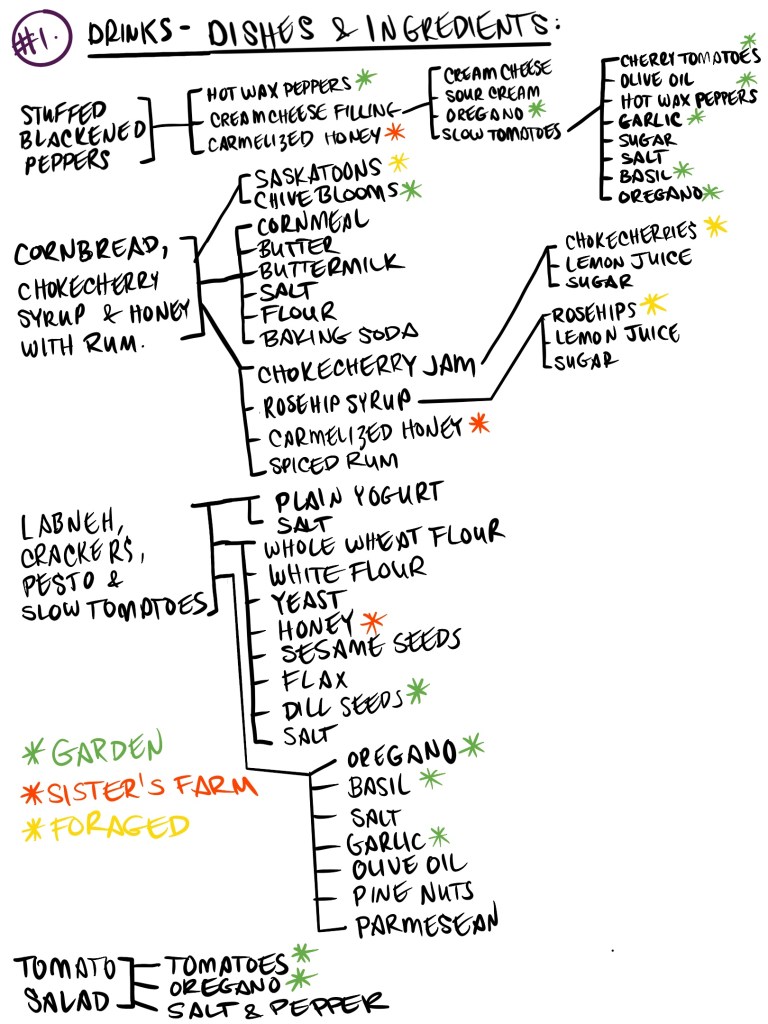 #1. DRINKS - DISHES & INGREDIENTS:
STUFFED
BLACKENED
PEPPERS
HOT WAX PEPPERS *
CREAM CHEESE FILLING
CARMELIZED HONEY *
CREAM CHEESE
SOUR CREAM
OREGANO *
SLOW TOMATOES
CHERRY TOMATOES *
OLIVE OIL
HOT WAX PEPPERS *
GARLIC *
SUGAR
SALT
BASIL *
OREGANO *
CORNBREAD,
CHOKECHERRY
SYRUP & HONEY
WITH RUM.
SASKATOONS *
CHIVE BLOOMS *
CORNMEAL
BUTTER
BUTTERMILK
SALT
FLOUR
BAKING SODA
CHOKECHERRY JAM
ROSEHIP SYRUP
CARMELIZED HONEY *
SPICED RUM
CHOKECHERRIES *
LEMON JUICE
SUGAR
ROSEHIPS *
LEMON JUICE
SUGAR
LABNEH,
CRACKERS,
PESTO &
SLOW TOMATOES
PLAIN YOGURT
SALT
WHOLE WHEAT FLOUR
WHITE FLOUR
YEAST
HONEY *
SESAME SEEDS
FLAX
DILL SEEDS *
SALT
OREGANO *
BASIL *
SALT
GARLIC *
OLIVE OIL
PINE NUTS
PARMESEAN
* GARDEN
* SISTER'S FARM
* FORAGED
TOMATO
SALAD
TOMATOES *
OREGANO *
SALT & PEPPER